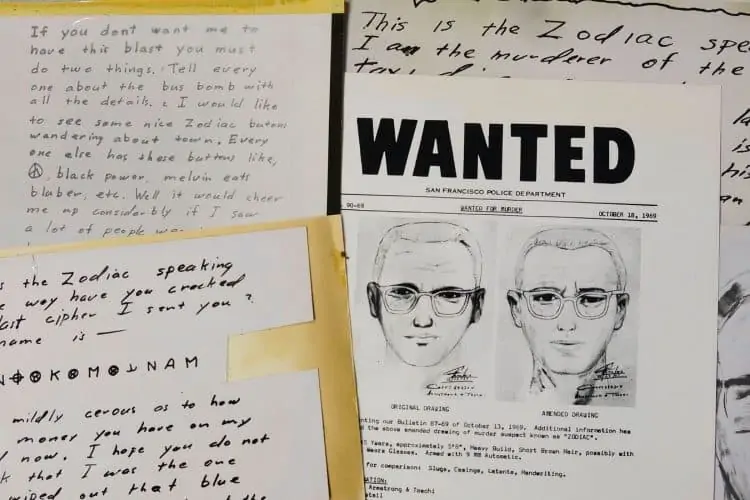 If you dont want me to
have this blast you must
do two things. Tell every
one about the bus bomb with
all the details. I would like
to see some nice Zodiac butons
wandering about town. Every
one else has these buttons like,
☮, black power, melvin eats
bluber, etc. Well it would cheer
me up considerbly if I saw
a lot of people
This is the Zodiac
I am the murderer of the
the Zodiac speaking
way have you cracked
cipher I sent you?
name is —
K M NAM
mildly cerous as to how
money you have on my
now. I hope you do not
that I was the one
wiped out that blue
WANTED
SAN FRANCISCO POLICE DEPARTMENT
90-69 WANTED FOR MURDER OCTOBER 18, 1969
ORIGINAL DRAWING AMENDED DRAWING
our Bulletin 87-69 of October 13, 1969. Additional information has
the above amended drawing of murder suspect known as "ZODIAC".
Years, approximately 5'8", Heavy Build, Short Brown Hair, possibly with
Wears Glasses. Armed with 9 MM Automatic.
for comparison: Slugs, Casings, Latents, Handwriting.
Armstrong & Toschi